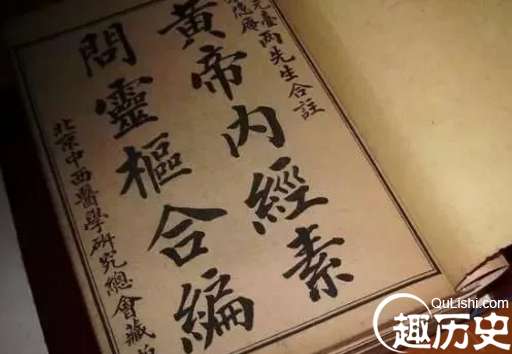 兩先生合註
黃帝內經素
問靈樞合編
北京中西醫學研究總會藏
QuLishi.com
趣历史